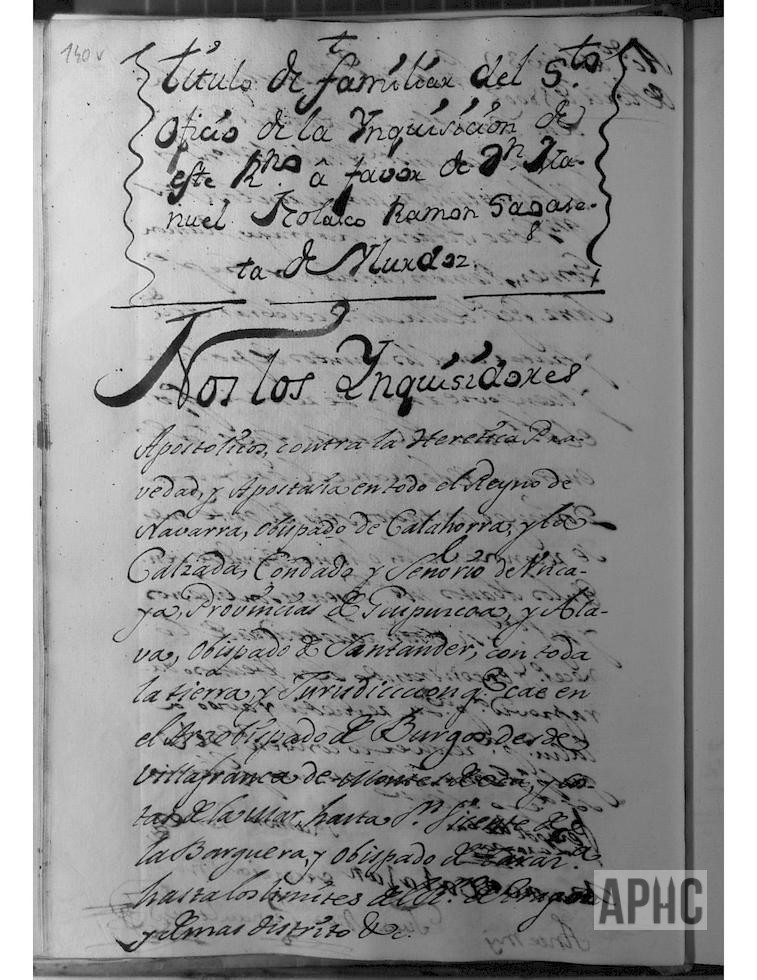 140 v
Título de familiar del S.to
Oficio de la Ynquisicion de
este R.no â favor de D.n Ma-
nuel Nicolàs Ramon Sagase-
ta de Murdoz
Nos los Ynquisidores
Apostolicos, contra la Heretica Pra-
vedad, y Apostasia en todo el Reyno de
Navarra, obispado de Calahorra, y la
Calzada, Condado y Señorio de Vizca-
ya, Provincias de Guipuzcoa, y Ala-
va, Obispado de Santander, con toda
la tierra, y Jurisdiccion q.e cae en
el Arzobispado de Burgos, desde
Villafranca de Montes de Oca, y
de la Mar, hasta S.n Vicente de
la Barquera, y Obispado de
hasta los limites del R.no de Aragon
y demas distrito &c.
APHC